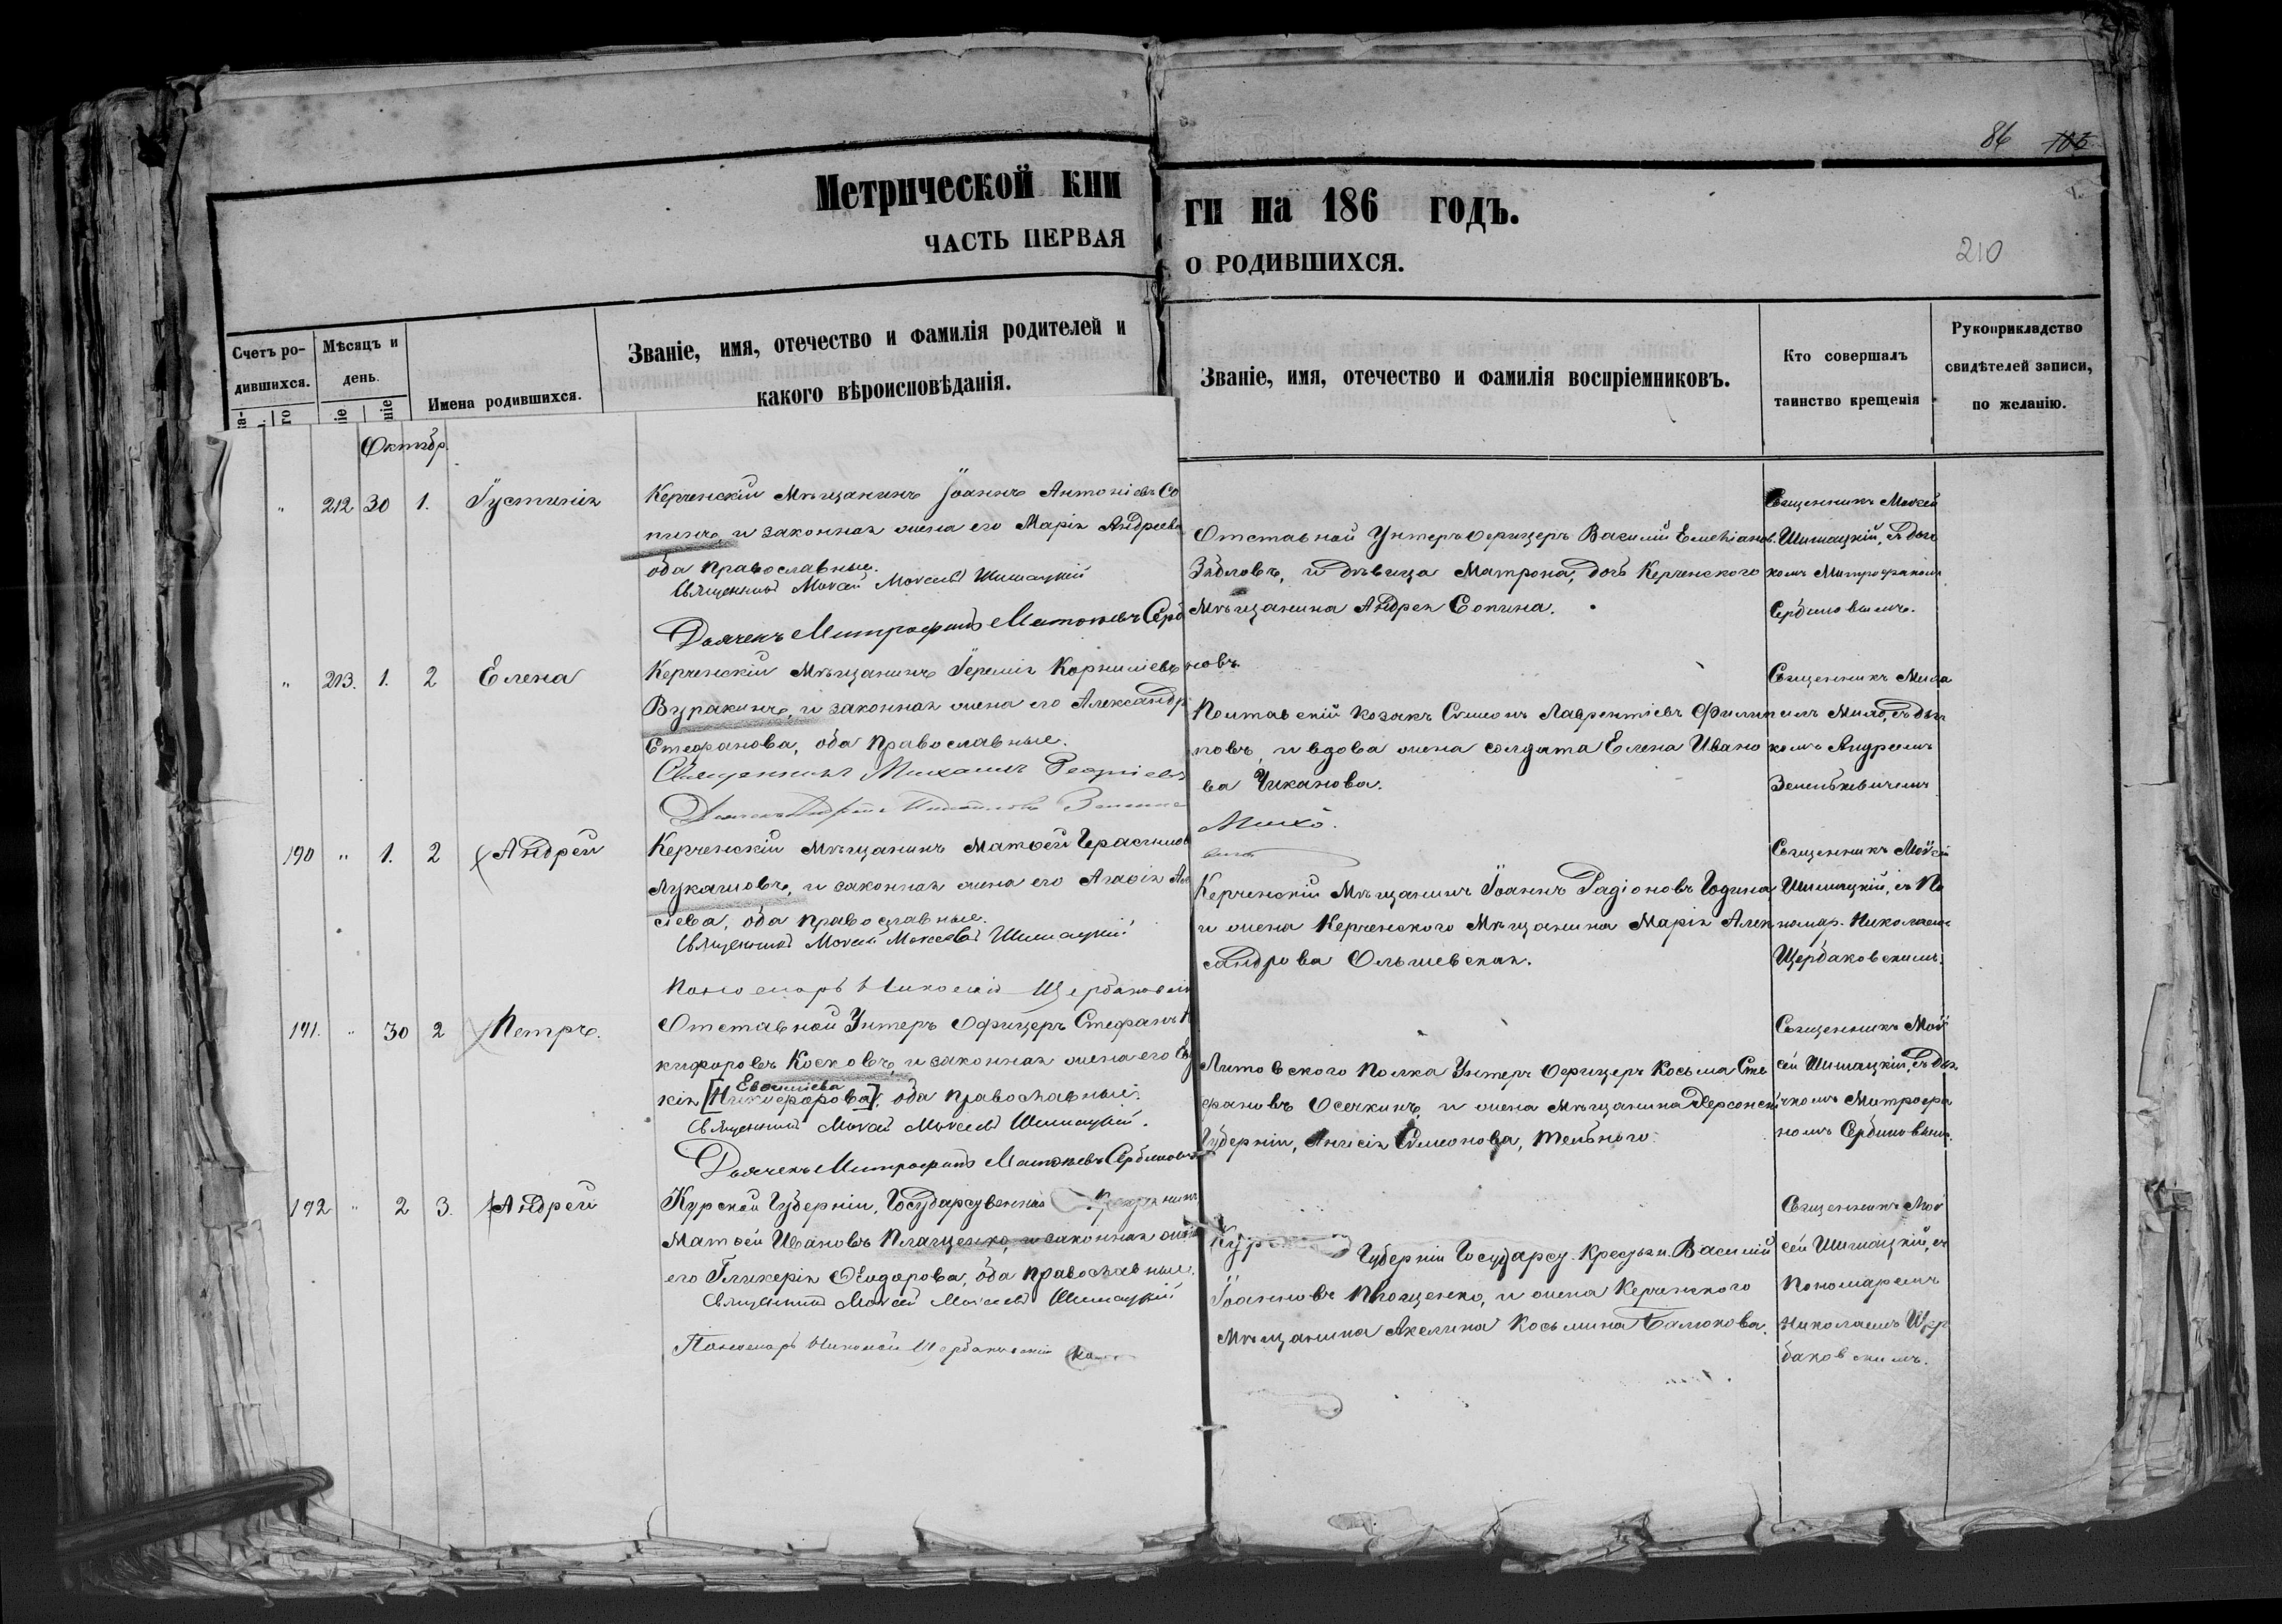 86 103
Метрической кни
ги на 186 годъ.
ЧАСТЬ ПЕРВАЯ
О РОДИВШИХСЯ.
210
Счетъ ро-
дившихся.
Мѣсяцъ и
день.
Имена родившихся.
Званіе, имя, отечество и фамилія родителей и
какого вѣроисповѣданія.
Званіе, имя, отечество и фамилія воспріемниковъ.
Кто совершалъ
таинство крещенія
Рукоприкладство
свидѣтелей записи,
по желанію.
Октябр.
" 212 30 1. Іустинія
Керченскій Мѣщанинъ Іоаннъ Антоніевъ Со
пинъ, и законная жена его Марія Андреева
оба православные.
Священникъ Моисей Моисеевъ Шишацкій
Дьячекъ Митрофанъ Серб
Отставной Унтеръ офицеръ Василій Емеліанов.
Зябловъ, и дѣвица Матрона, дочь Керченского
Мѣщанина Андрея Сопина.
Священникъ Моисей
Шишацкій, съ дья
комъ Митрофаном
Сербиновымъ.
" 213. 1. 2 Елена
Керченскій Мѣщанинъ Іеремія Корниліевъ
Буракинъ, и законная жена его Александр
Стефанова, оба православные.
Священникъ Михаилъ Георгіевъ
новъ.
Полтавскій козакъ Симеонъ Лаврентіевъ Филип
повъ, и вдова жена солдата Елена Ивано
ва Чиканова.
Михо.
Священникъ Миха
илъ Михо, съ дья
комъ Андреемъ
Зенькевичемъ
190 " 1. 2 Андрей
Керченскій Мѣщанинъ Матѳей Герасимов
Лукашовъ, и законная жена его Агаѳія Ал
сіева, оба православные.
Священникъ Моисей Моисеевъ Шишацкій
Пономарь Николай Щербаковскій
Керченскій Мѣщанинъ Іоаннъ Радіоновъ Година,
и жена Керченского Мѣщанина Марія Алек
сандрова Ольшевская.
Священникъ Моисей
Шишацкій, съ По
номар. Николаем
Щербаковскимъ.
191. " 30 2 Петръ.
Отставной Унтеръ Офицеръ Стефанъ Н
кифоровъ Косковъ, и законная жена его Ев
Евѳиміева
кія [Никифорова], оба православные.
Священникъ Моисей Моисеевъ Шишацкій.
Дьячекъ Митрофанъ Сербиновъ
Литовского полка Унтеръ Офицеръ Косьма Сте
фановъ Осечкинъ, и жена Мѣщанина Херсонск
Губерніи, Анисія Симеонова, Тельного.
Священникъ Мой
сей Шишацкій, съ дья
чкомъ Митрофа
номъ Сербиновым.
192 " 2 3. Андрей
Курской Губерніи, Государственный Крестьянинъ
Матѳей Ивановъ Плащенко, и законная жена
его Гликерія Ѳеодорова, оба православные.
Священникъ Моисей Моисеевъ Шишацкій
Пономарь Николай Щербаковскій
Кур Губерніи Государст. Крестьян. Василій
Іоанновъ Плащенко, и жена Керченского
Мѣщанина Акелина Косьмина Балюкова.
Священникъ Мой
сей Шишацкій, съ
Пономаремъ
Николаемъ Щер
баковскимъ.